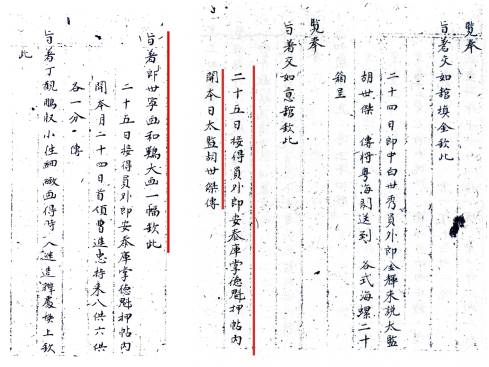 覽奉
旨著交如舘填金欽此
二十四日郎中白世秀員外郎金輝來說太監
胡世傑 傳將粵海關送到 各式海螺二十
箱呈
覽奉
旨著交如意舘欽此
二十五日接得員外郎安泰庫掌德魁押帖內
開本日太監胡世傑傳
旨著郎世寧画和鷄大画一幅欽此
二十五日接得員外郎安泰庫掌德魁押帖內
開本月二十四日首領曹進忠持來八供六供
各一分 傳
旨著丁觀鵬收小 細緻画得時入 造 慶樓上欽
此